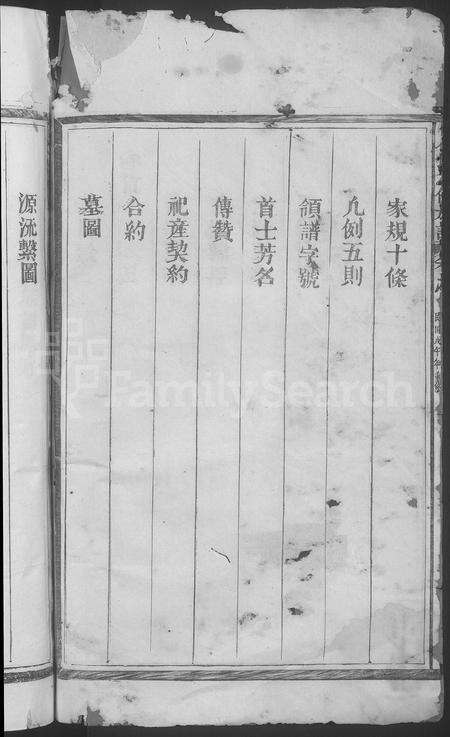 家規十條
凡例五則
領譜字號
首士芳名
傳贊
祀產契約
合約
墓圖
源流繫圖
FamilySearch